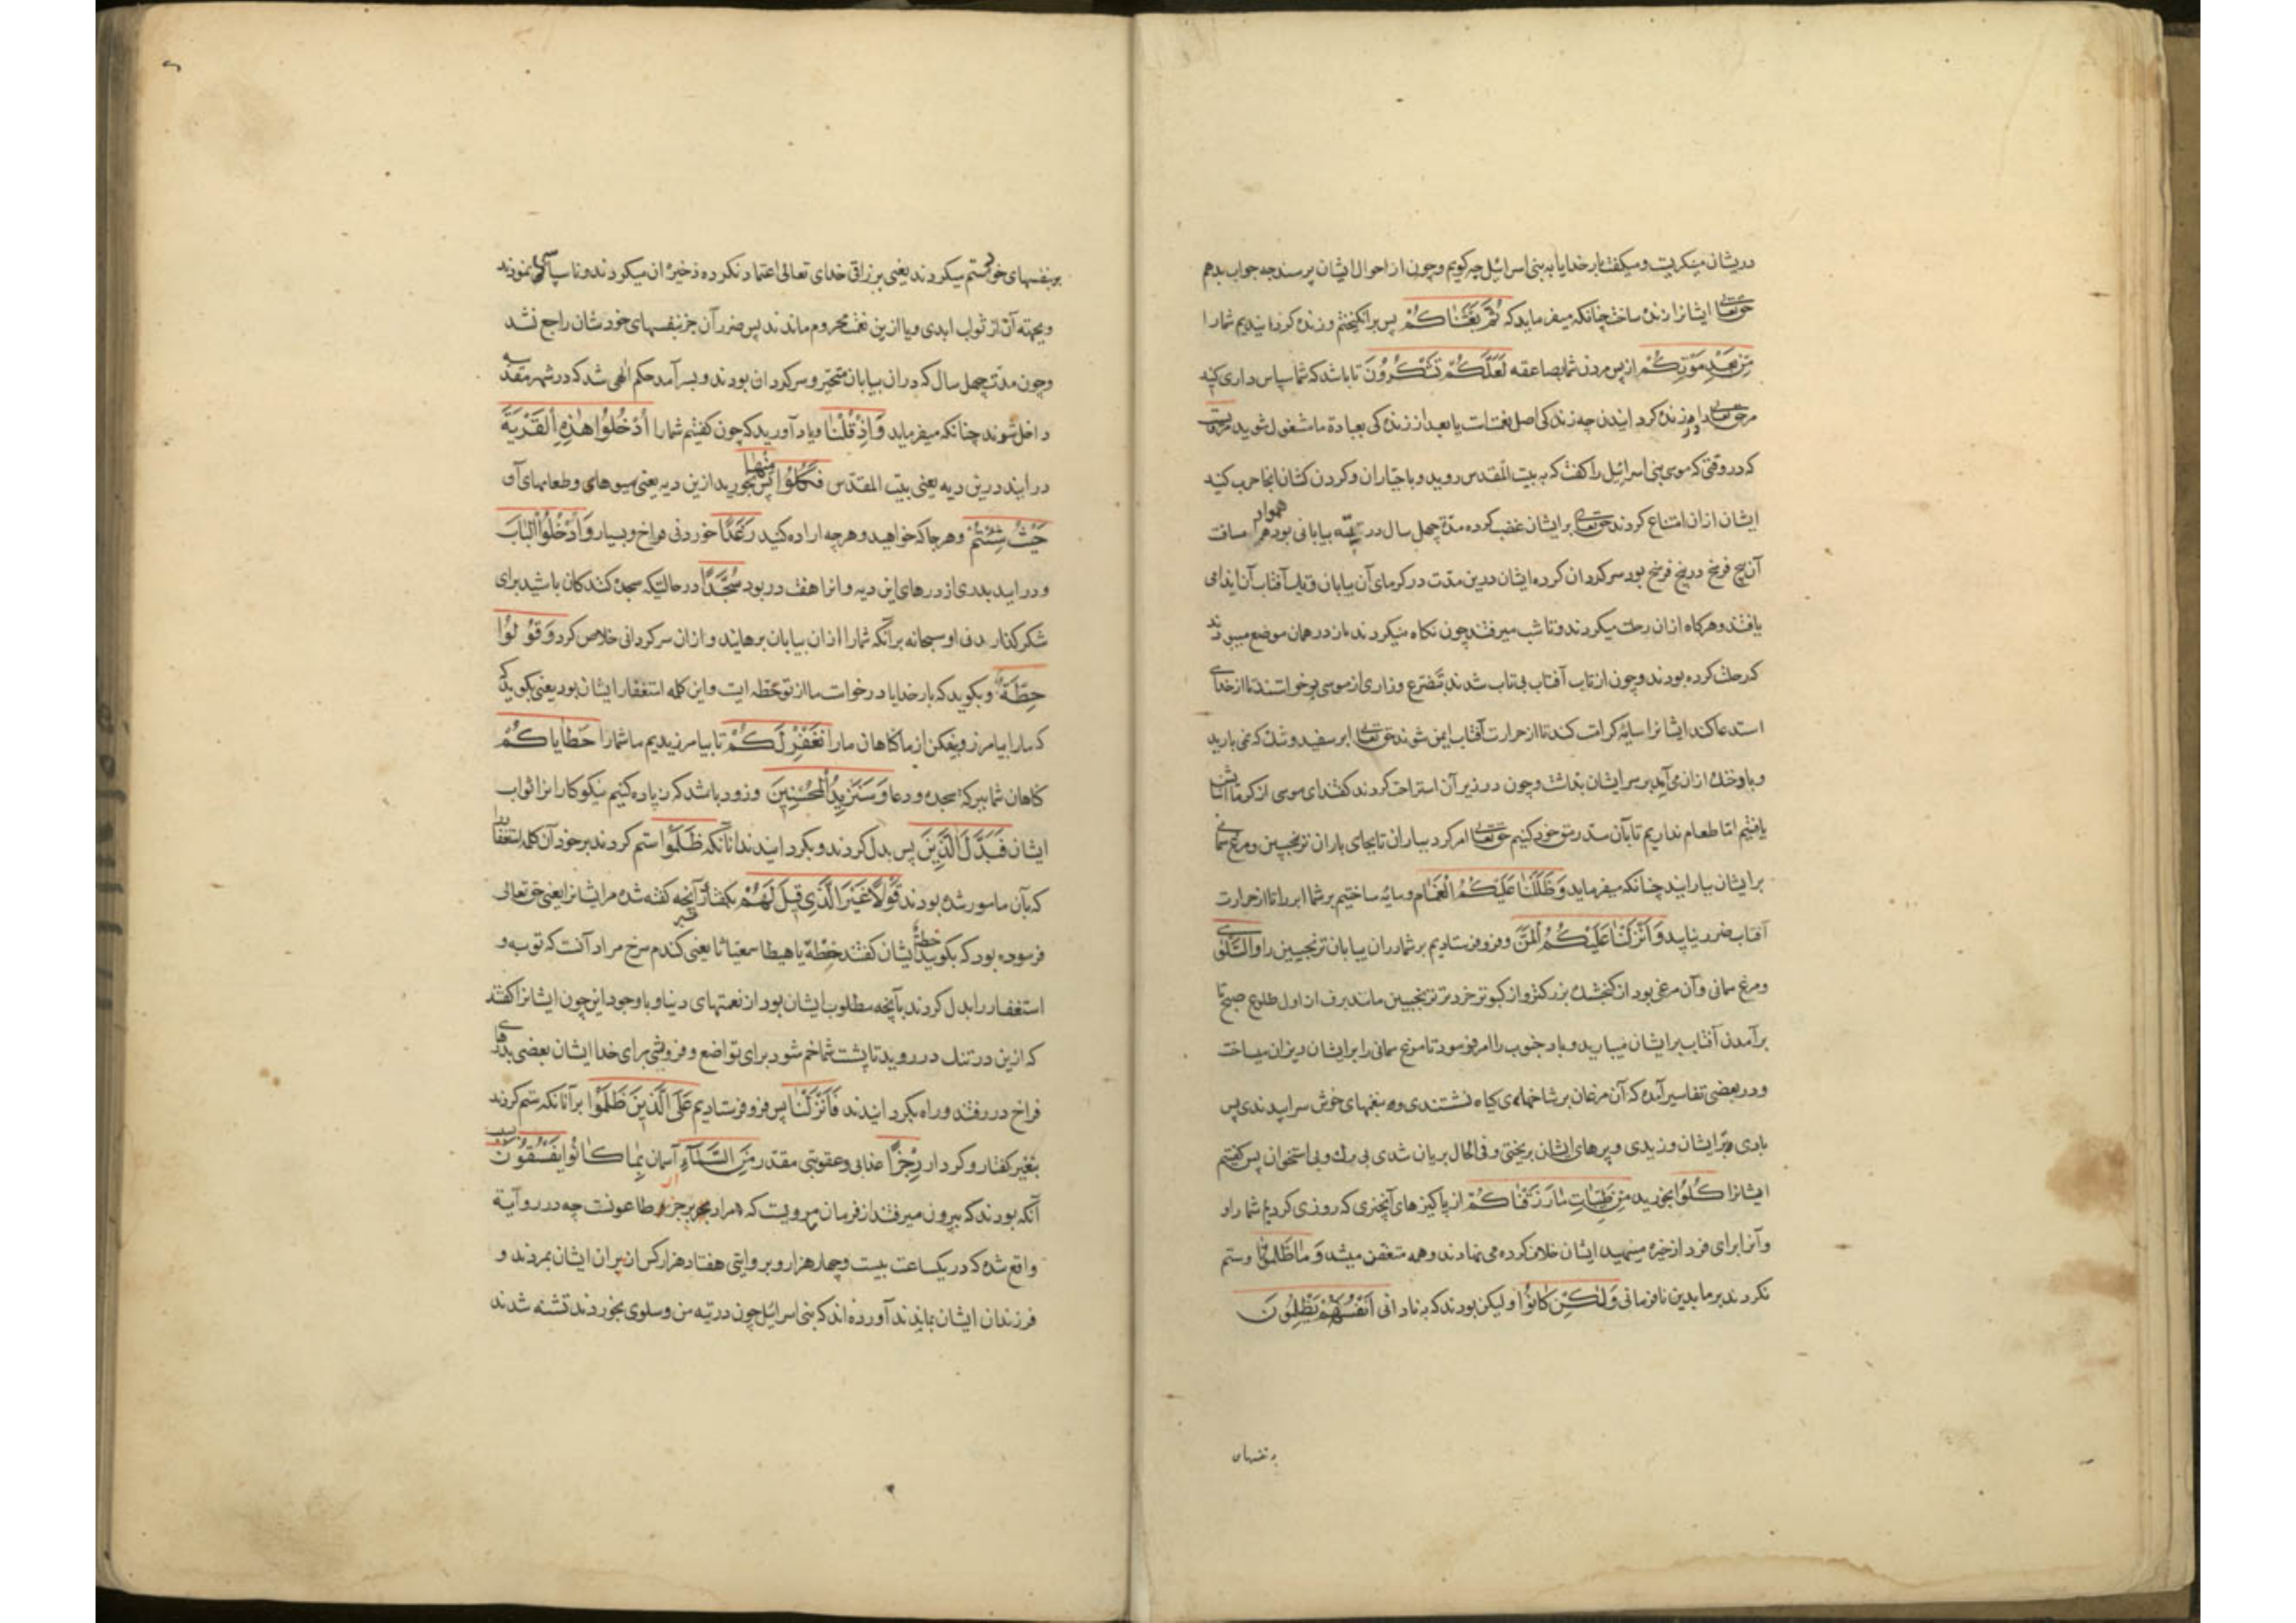 دریشان مینکریت و میکفت بار خدایا به بنی اسرائیل چه کویم و چون از احوال ایشان پرسند چه جواب بدهم
حق تعالی ایشانرا زنده ساخت چنانکه میفرماید که ثُمَّ بَعَثْنَاكُمْ پس برانکیختم و زنده کردانیدیم شما را
مِنْ بَعْدِ مَوْتِكُمْ از پس مردن شما بصاعقه لَعَلَّكُمْ تَشْكُرُونَ تا باشد که شما سپاس داری کنید
مر حق تعالی را در زنده کردانیدن چه زندکی اصل نعمتست یا بعد از زندکی بعبادة ما مشغول شوید
که در وقتی که موسی بنی اسرائیل را کفت که به بیت المقدس روید و با جباران و کردن کشان انجا حرب کنید
ایشان ازان امتناع کردند حق تعالی بر ایشان غضب کرده مدّة چهل سال در تیه بیابانی بود هموار مسافت
آن پنج فرسخ در پنج فرسخ بود سرکردان کرده ایشان درین مدّت در کرمای آن بیابان و تاب آفتاب آن ایذا می
یافتند و هرکاه ازان رحلت میکردند و تا شب میرفتند چون نکاه میکردند باز در همان موضع میبودند
که رحلت کرده بودند و چون از تاب آفتاب بی تاب شدند بتضرع و زاری از موسی درخواستند تا از خدای
استدعا کند ایشانرا سایهٔ کرامت کند تا از حرارت آفتاب ایمن شوند حق تعالی ابر سفید و تنک که نمی بارید
و باد خنک ازان می آمد بر سر ایشان بداشت و چون در زیر آن استراحت کردند کفتند ای موسی از کرما امان
یافتیم امّا طعام نداریم تا بآن سدّ رمق خود کنیم حق تعالی امر کرد بباران تا بجای باران ترنجبین و مرغ سمانی
بر ایشان بارانید چنانکه میفرماید وَظَلَّلْنَا عَلَيْكُمُ الْغَمَامَ و سایه ساختیم بر شما ابر را تا از حرارت
آفتاب ضرر نیابید وَاَنْزَلْنَا عَلَيْكُمُ الْمَنَّ و فرو فرستادیم بر شما دران بیابان ترنجبین را وَالسَّلْوٰى
و مرغ سمانی و آن مرغی بود از کنجشک بزرکتر و از کبوتر خردتر ترنجبین مانند برف از اول طلوع صبح تا
برآمدن آفتاب بر ایشان میبارید و باد جنوب را امر فرمود تا مرغ سمانی را بر ایشان ریزان میساخت
و در بعضی تفاسیر آمده که آن مرغان بر شاخهای کیاه نشستندی و به نغمهای خوش سراییدندی پس
بادی بر ایشان وزیدی و پرهای ایشان بریختی و فی الحال بریان شدی بی رک و بی استخوان پس کفتیم
ایشانرا كُلُوا بخورید مِنْ طَيِّبَاتِ مَا رَزَقْنَاكُمْ از پاکیزهای آنچیزی که روزی کردیم شما را و
و آنرا برای فردا ذخیره منهید ایشان خلاف کرده می نهادند و همه متعفن میشد وَمَا ظَلَمُونَا و ستم
نکردند بر ما بدین نافرمانی وَلٰكِنْ كَانُوا و لیکن بودند که به نادانی اَنْفُسَهُمْ يَظْلِمُونَ
بر نفسهای
بر نفسهای خود ستم میکردند یعنی بر رزاقی خدای تعالی اعتماد نکرده ذخیره آن میکردند و ناسپاسی نموذند
و بجهته آن از ثواب ابدی و یا ازین نعمت محروم ماندند پس ضرر آن جز بنفسهای خودشان راجع نشد
و چون مدّت چهل سال که دران بیابان متحیّر و سرکردان بودند و بسر آمد حکم الهی شد که در شهر مقدّسه
داخل شوند چنانکه میفرماید وَاِذْ قُلْنَا و یاد آورید که چون کفتیم شما را اُدْخُلُوا هٰذِهِ الْقَرْيَةَ
درایند درین دیه یعنی بیت المقدّس فَكُلُوا مِنْهَا پس بخورید ازین دیه یعنی میوهای و طعامهای آو
حَيْثُ شِئْتُمْ و هرجا که خواهید و هرچه اراده کنید رَغَدًا خوردنی فراخ و بسیار وَادْخُلُوا الْبَابَ
و درایید بدری از درهای این دیه و انرا هفت در بود سُجَّدًا در حالتیکه سجده کنندکان باشید برای
شکرکذاردنی او سبحانه برآنکه شما را ازان بیابان برهانند و ازان سرکردانی خلاص کرد وَقُولُوا
حِطَّةٌ و بکویید که بار خدایا درخواست ما از تو حطّه است و این کلمه استغفار ایشان بود یعنی بکویید که
که ما را بیامرز و بیفکن از ما کناهان ما را نَغْفِرْ لَكُمْ تا بیامرزیدیم ما شما را خَطَايَاكُمْ
کناهان شما ببرکة سجده و دعا وَسَنَزِيدُ الْمُحْسِنِينَ و زود باشد که زیاده کنیم نیکوکارانرا ثواب
ایشان فَبَدَّلَ الَّذِينَ پس بدل کردند و بکردانیدند انانکه ظَلَمُوا ستم کردند بر خود آن کلمه استغفار را
که بآن مامور شده بودند قَوْلًا غَيْرَ الَّذِي قِيلَ لَهُمْ بکفتار غیر آنچه کفته شده مر ایشانرا یعنی حق تعالی
فرموده بود که بکویید حطّة ایشان کفتند حنطة یا هیطا سمعیاثا یعنی کندم سرخ مراد آنست که توبه و
استغفار را بدل کردند بآنچه مطلوب ایشان بود از نعمتهای دنیا و با وجود این چون ایشانرا کفتند
که ازین در تنک در روید تا پشت شما خم شود برای تواضع و فروتنی برای خدا ایشان بعضی بدرهای
فراخ در رفتند و راه بکردانیدند فَاَنْزَلْنَا پس فرو فرستادیم عَلَى الَّذِينَ ظَلَمُوا برآنانکه ستم کردند
بتغییر کفتار و کردار رِجْزًا عذابی و عقوبتی مقدّر مِنَ السَّمَاءِ آسمان بِمَا كَانُوا يَفْسُقُونَ بسبب
آنکه بودند که بیرون میرفتند از فرمان مرویست که مراد از رجز طاعونست چه در روآیة
واقع شده که در یکساعت بیست و چهار هزار و بروایتی هفتاد هزار کس از پیران ایشان بمردند و
فرزندان ایشان بماندند آورده اند که بنی اسرائیل چون در تیه من و سلوی بخوردند تشنه شدند